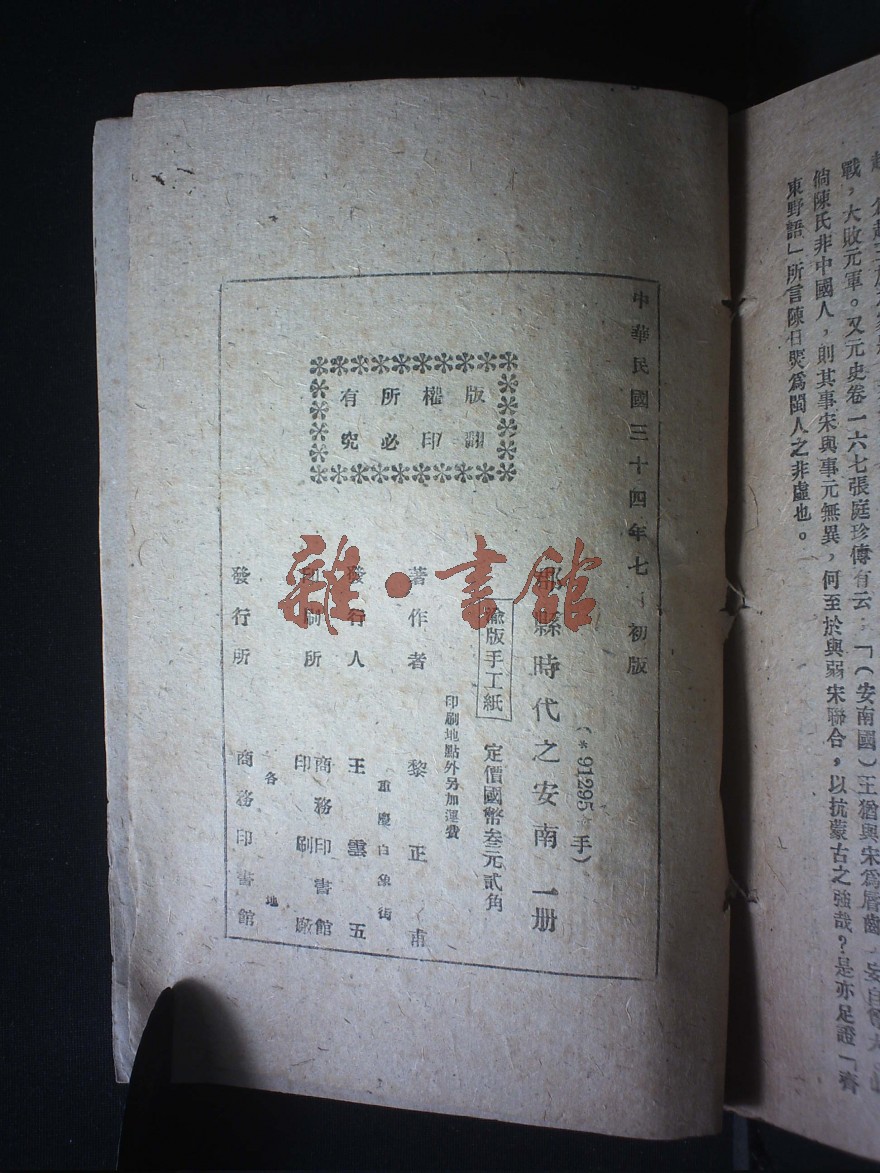 戰，大敗元軍。又元史卷一六七張庭珍傳有云：「（安南國）王猶與宋爲脣齒
倘陳氏非中國人，則其事宋與事元無異，何至於與弱宋聯合，以抗蒙古之強哉？是亦足證「齊
東野語」所言陳日煚爲閩人之非虛也。
中華民國三十四年七月初版
（*91295 手）
郡縣時代之安南 一册
渝版手工紙 定價國幣叁元貳角
印刷地點外另加運費
著作者 黎正甫
重慶白象街
發行人 王雲五
印刷所 商務印書館
印刷廠
各地
發行所 商務印書館
版權所有
翻印必究
雜·書館